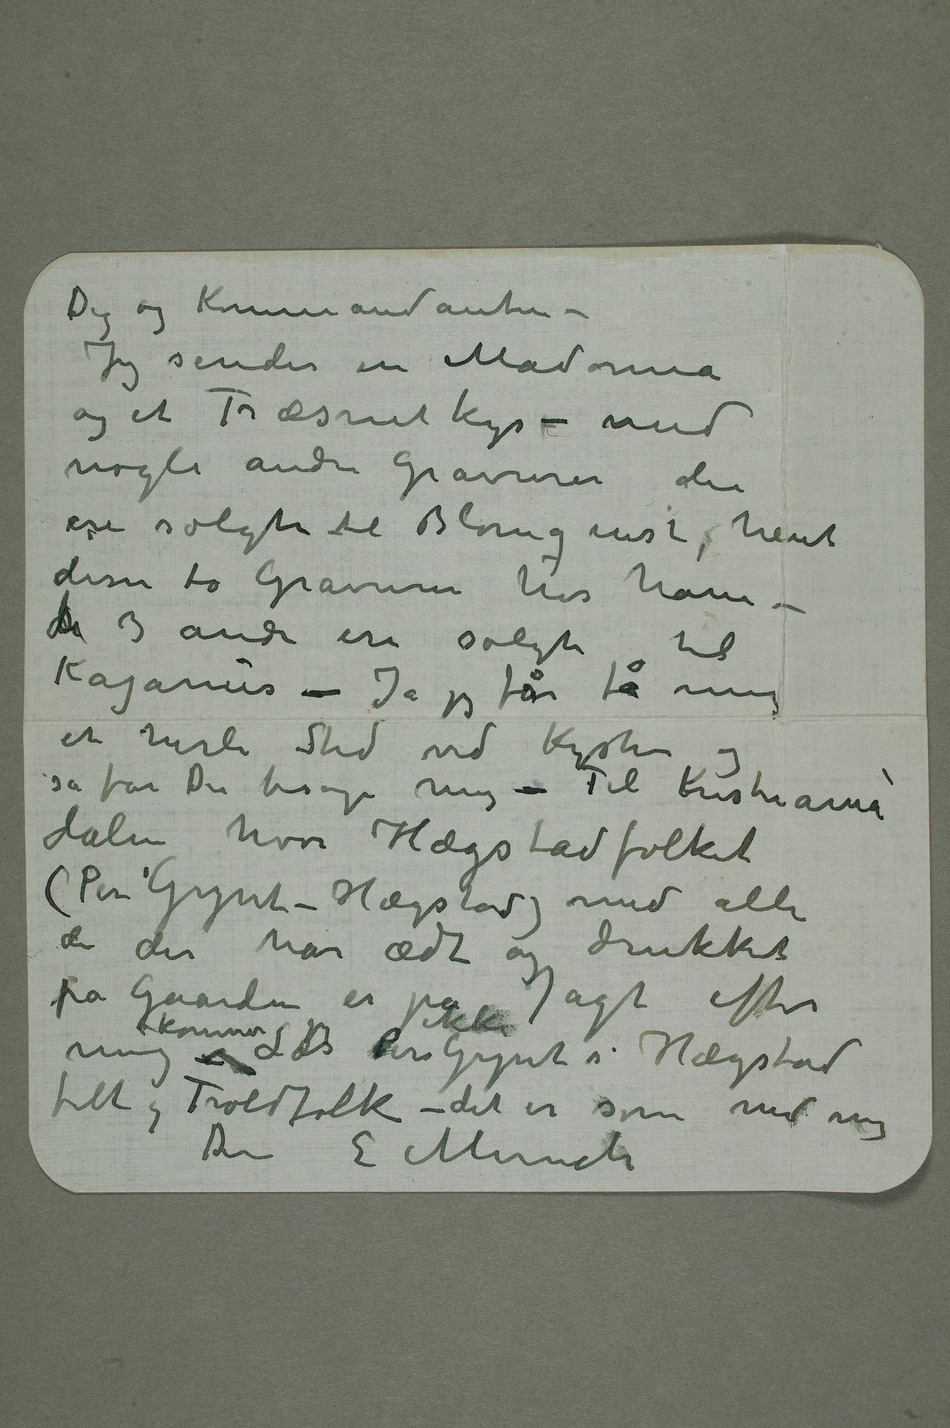 Dig og Kommandanten –
Jeg sender en Madonna
og et Træsnit kys – med
nogle andre Gravurer der
ere solgte til Blomquist, hent
disse to Gravurer hos ham –
de 3 andre ere solgte til
Kajanus – Ja jeg får få mig
et herli Sted ved Kysten og
så får Du besøge mig – Til Kristiania
dalen hvor Hægstadfolket
(Per Gynt – Hægstad) med alle
de der har ædt og drukket
fra Gaarden er på Jagt efter
mig kommer jeg ikke
Læs Per Gynts Hægstad
felt og Troldfolk – det er som med mig
Din E Munch